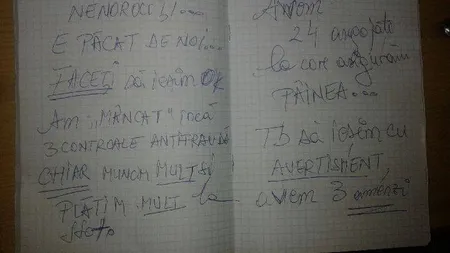 NENOROCIȚI...
E PĂCAT DE NOI...
FACEȚI să ieșim OK
AM „MÂNCAT" încă
3 CONTROALE ANTIFRAUDĂ
CHIAR MUNCIM MULT ȘI
PLĂTIM MULT la
Stat.
Avem
24 angajați
la care asigurăm
PÂINEA...
Tb să ieșim cu
AVERTISMENT,
avem 3 amenzi